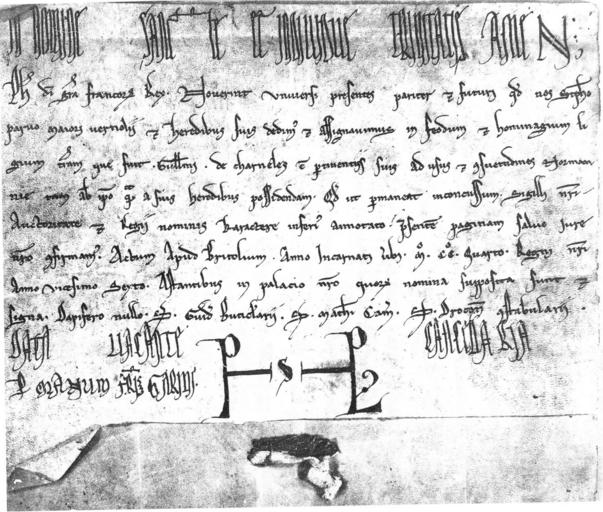 IN NOMINE SANCTE ET INDIVIDUE TRINITATIS AMEN
Ph' di gra francorȝ Rex. Noverint universi presentes pariter & futuri qd nos Stepho
parvo maiori vernolii & heredibus suis dedim' & assignavimus in feodum & hominagium li
gium trām que fuit Guillmi de charneles & pertinentiis suis ad usus & gsuetudines Norman
nie tam ab ipso qm a suis heredibus possidendam. Qd ut permaneat inconcussum. Sigilli nri
Auctoritate & Regii nominis karactere inferi' annotato. psentē paginam salvo iure
nro gfirmam'. Actum Apud Britolium. Anno Incarnati Ubi. M. CC. Quarto. Regni nri
Anno vicesimo Sexto. Astantibus in palacio nro quorȝ nomina supposita sunt &
signa. Dapifero nullo. S. Guid' Buticularii. S. Mathi Cam'. S. Droconis gstabularii.
DATA VACANTE CANCELLARIA
P S P
PER MANUM FRIS GARINI